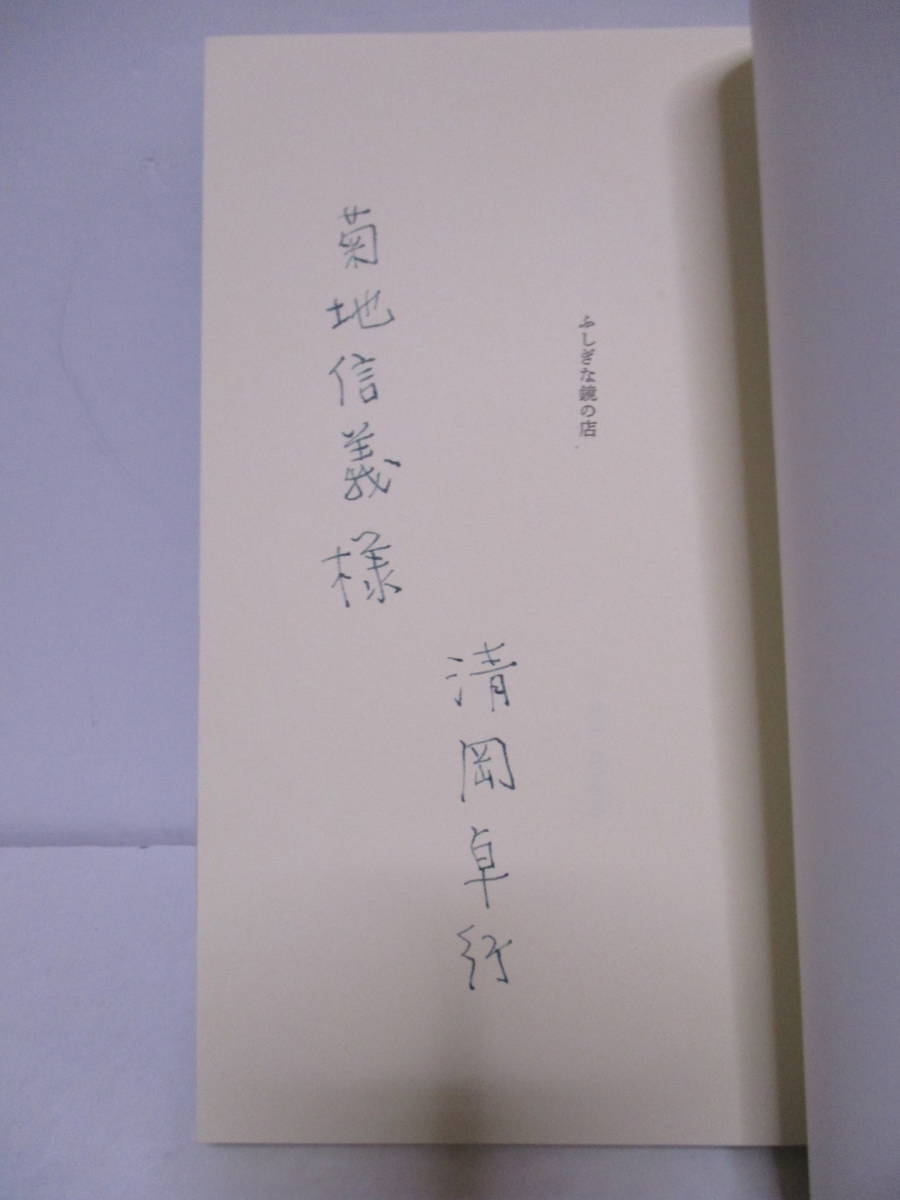 ふしぎな鏡の店
清岡卓行
菊地信義様